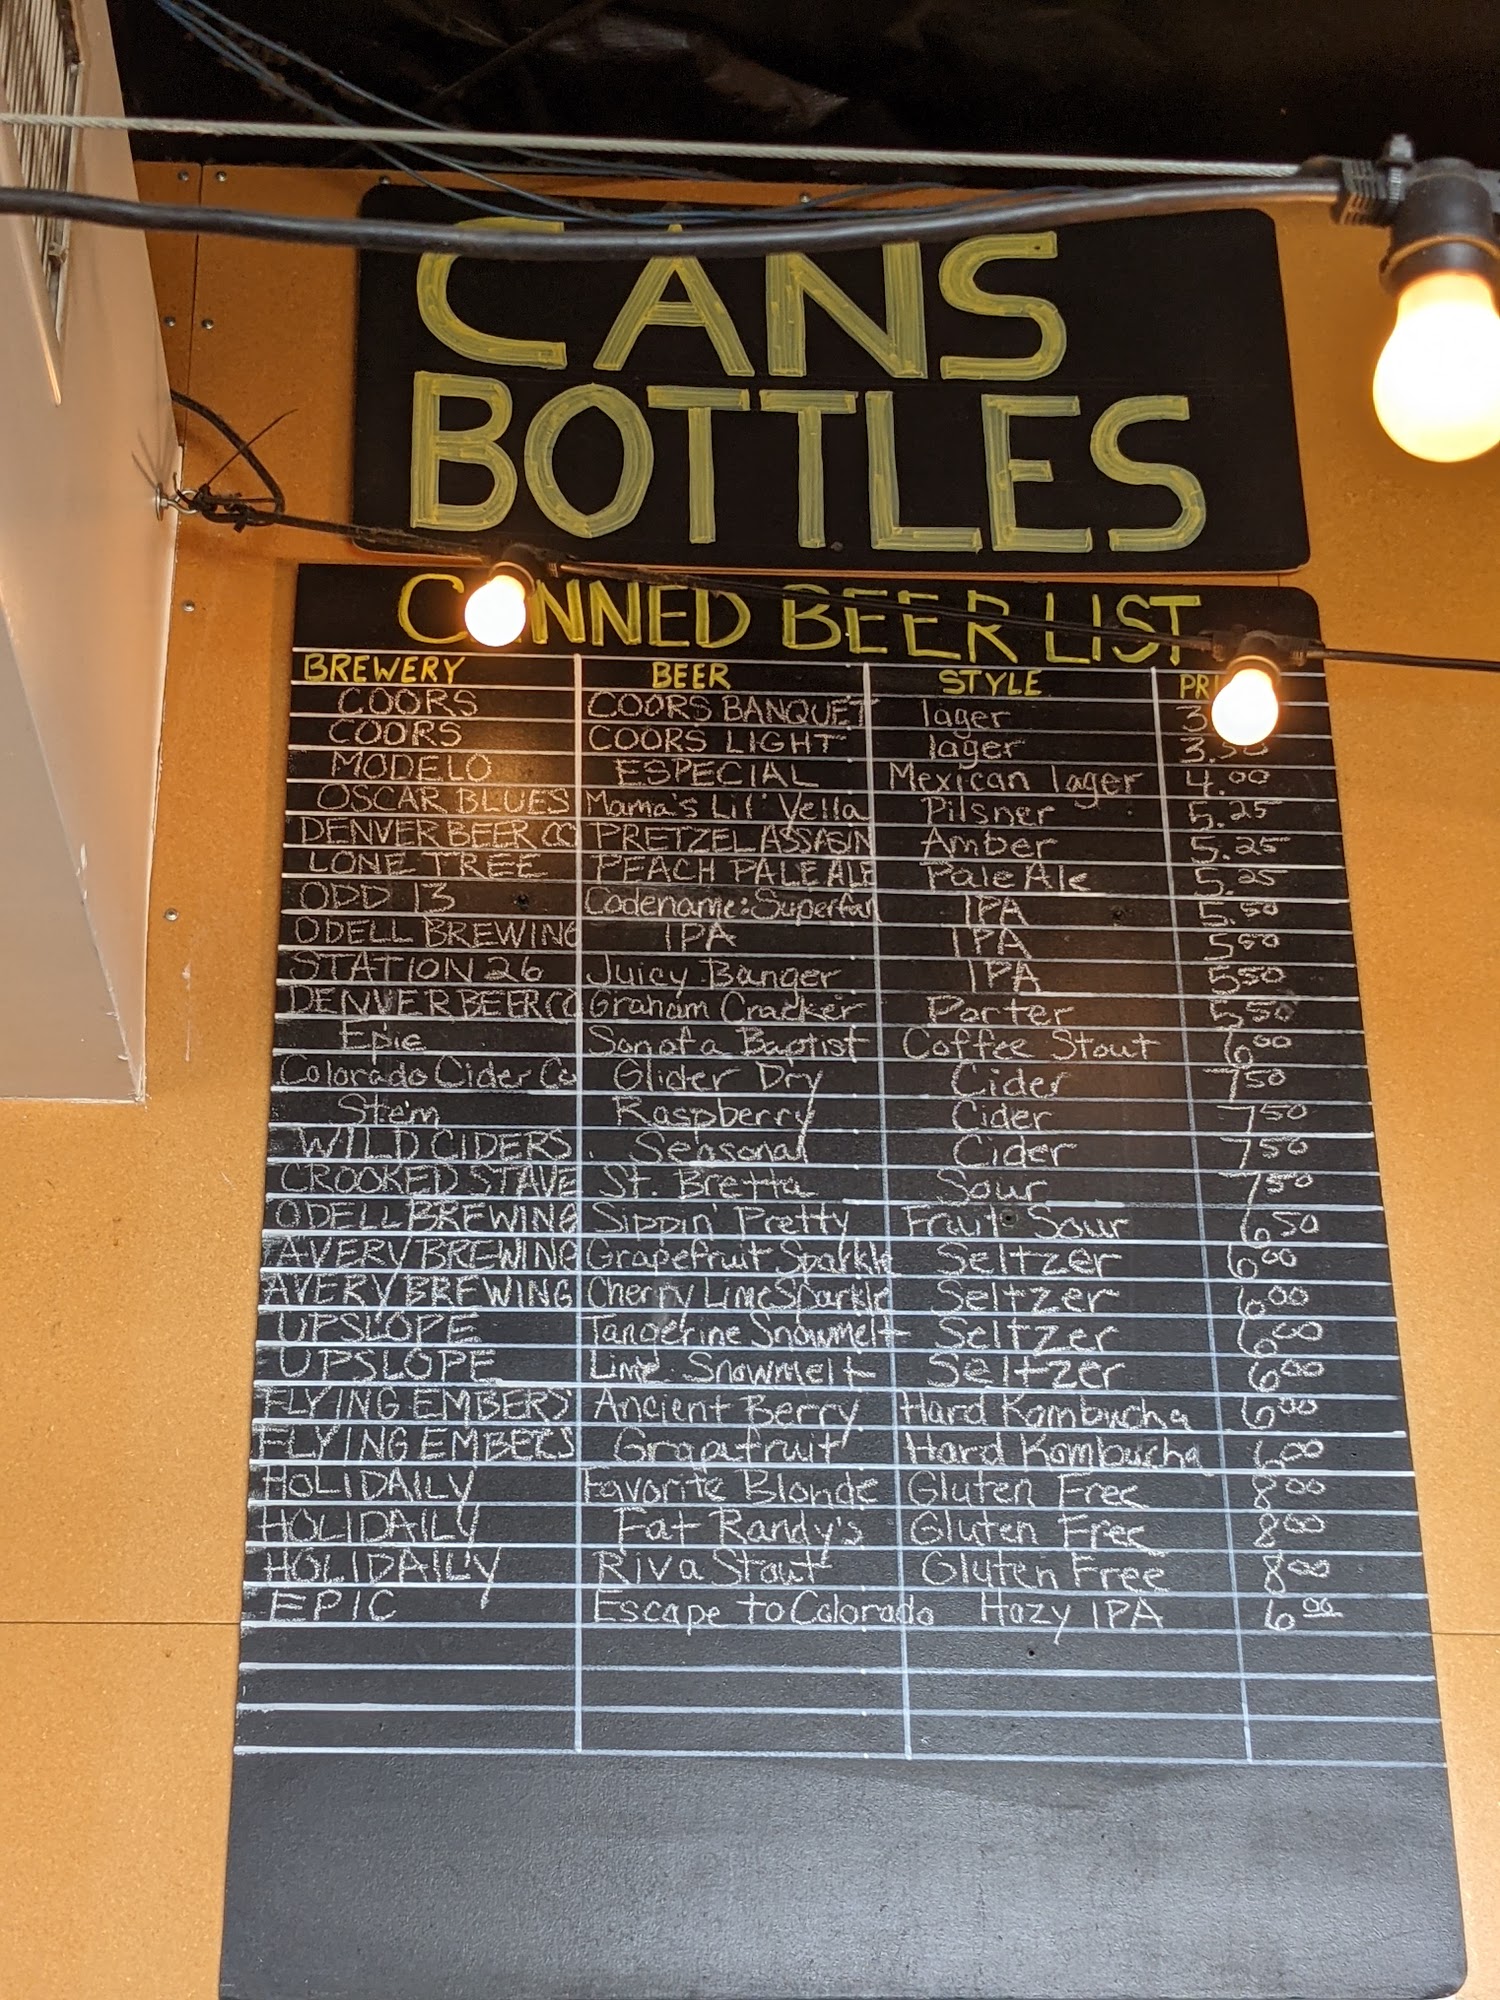 CANS
BOTTLES
CANNED BEER LIST
BREWERY BEER STYLE
COORS COORS BANQUET lager
COORS COORS LIGHT lager 3.50
MODELO ESPECIAL Mexican lager 4.00
OSCAR BLUES Mama's Lil' Yella Pilsner 5.25
DENVER BEER CO PRETZEL ASSASIN Amber 5.25
LONE TREE PEACH PALE ALE Pale Ale 5.25
ODD 13 Codename: Superfan IPA 5.50
ODELL BREWING IPA IPA 5.50
STATION 26 Juicy Banger IPA 5.50
DENVER BEER CO Graham Cracker Porter 5.50
Epic Son of a Baptist Coffee Stout 6.00
Colorado Cider Co Glider Dry Cider 7.50
Stem Raspberry Cider 7.50
WILD CIDERS Seasonal Cider 7.50
CROOKED STAVE St. Bretta Sour 7.50
ODELL BREWING Sippin' Pretty Fruit Sour 6.50
AVERY BREWING Grapefruit Sparkle Seltzer 6.00
AVERY BREWING Cherry Lime Sparkle Seltzer 6.00
UPSLOPE Tangerine Snowmelt Seltzer 6.00
UPSLOPE Lime Snowmelt Seltzer 6.00
FLYING EMBERS Ancient Berry Hard Kombucha 6.00
FLYING EMBERS Grapefruit Hard Kombucha 6.00
HOLIDAILY Favorite Blonde Gluten Free 8.00
HOLIDAILY Fat Randy's Gluten Free 8.00
HOLIDAILY Riva Stout Gluten Free 8.00
EPIC Escape to Colorado Hazy IPA 6.00